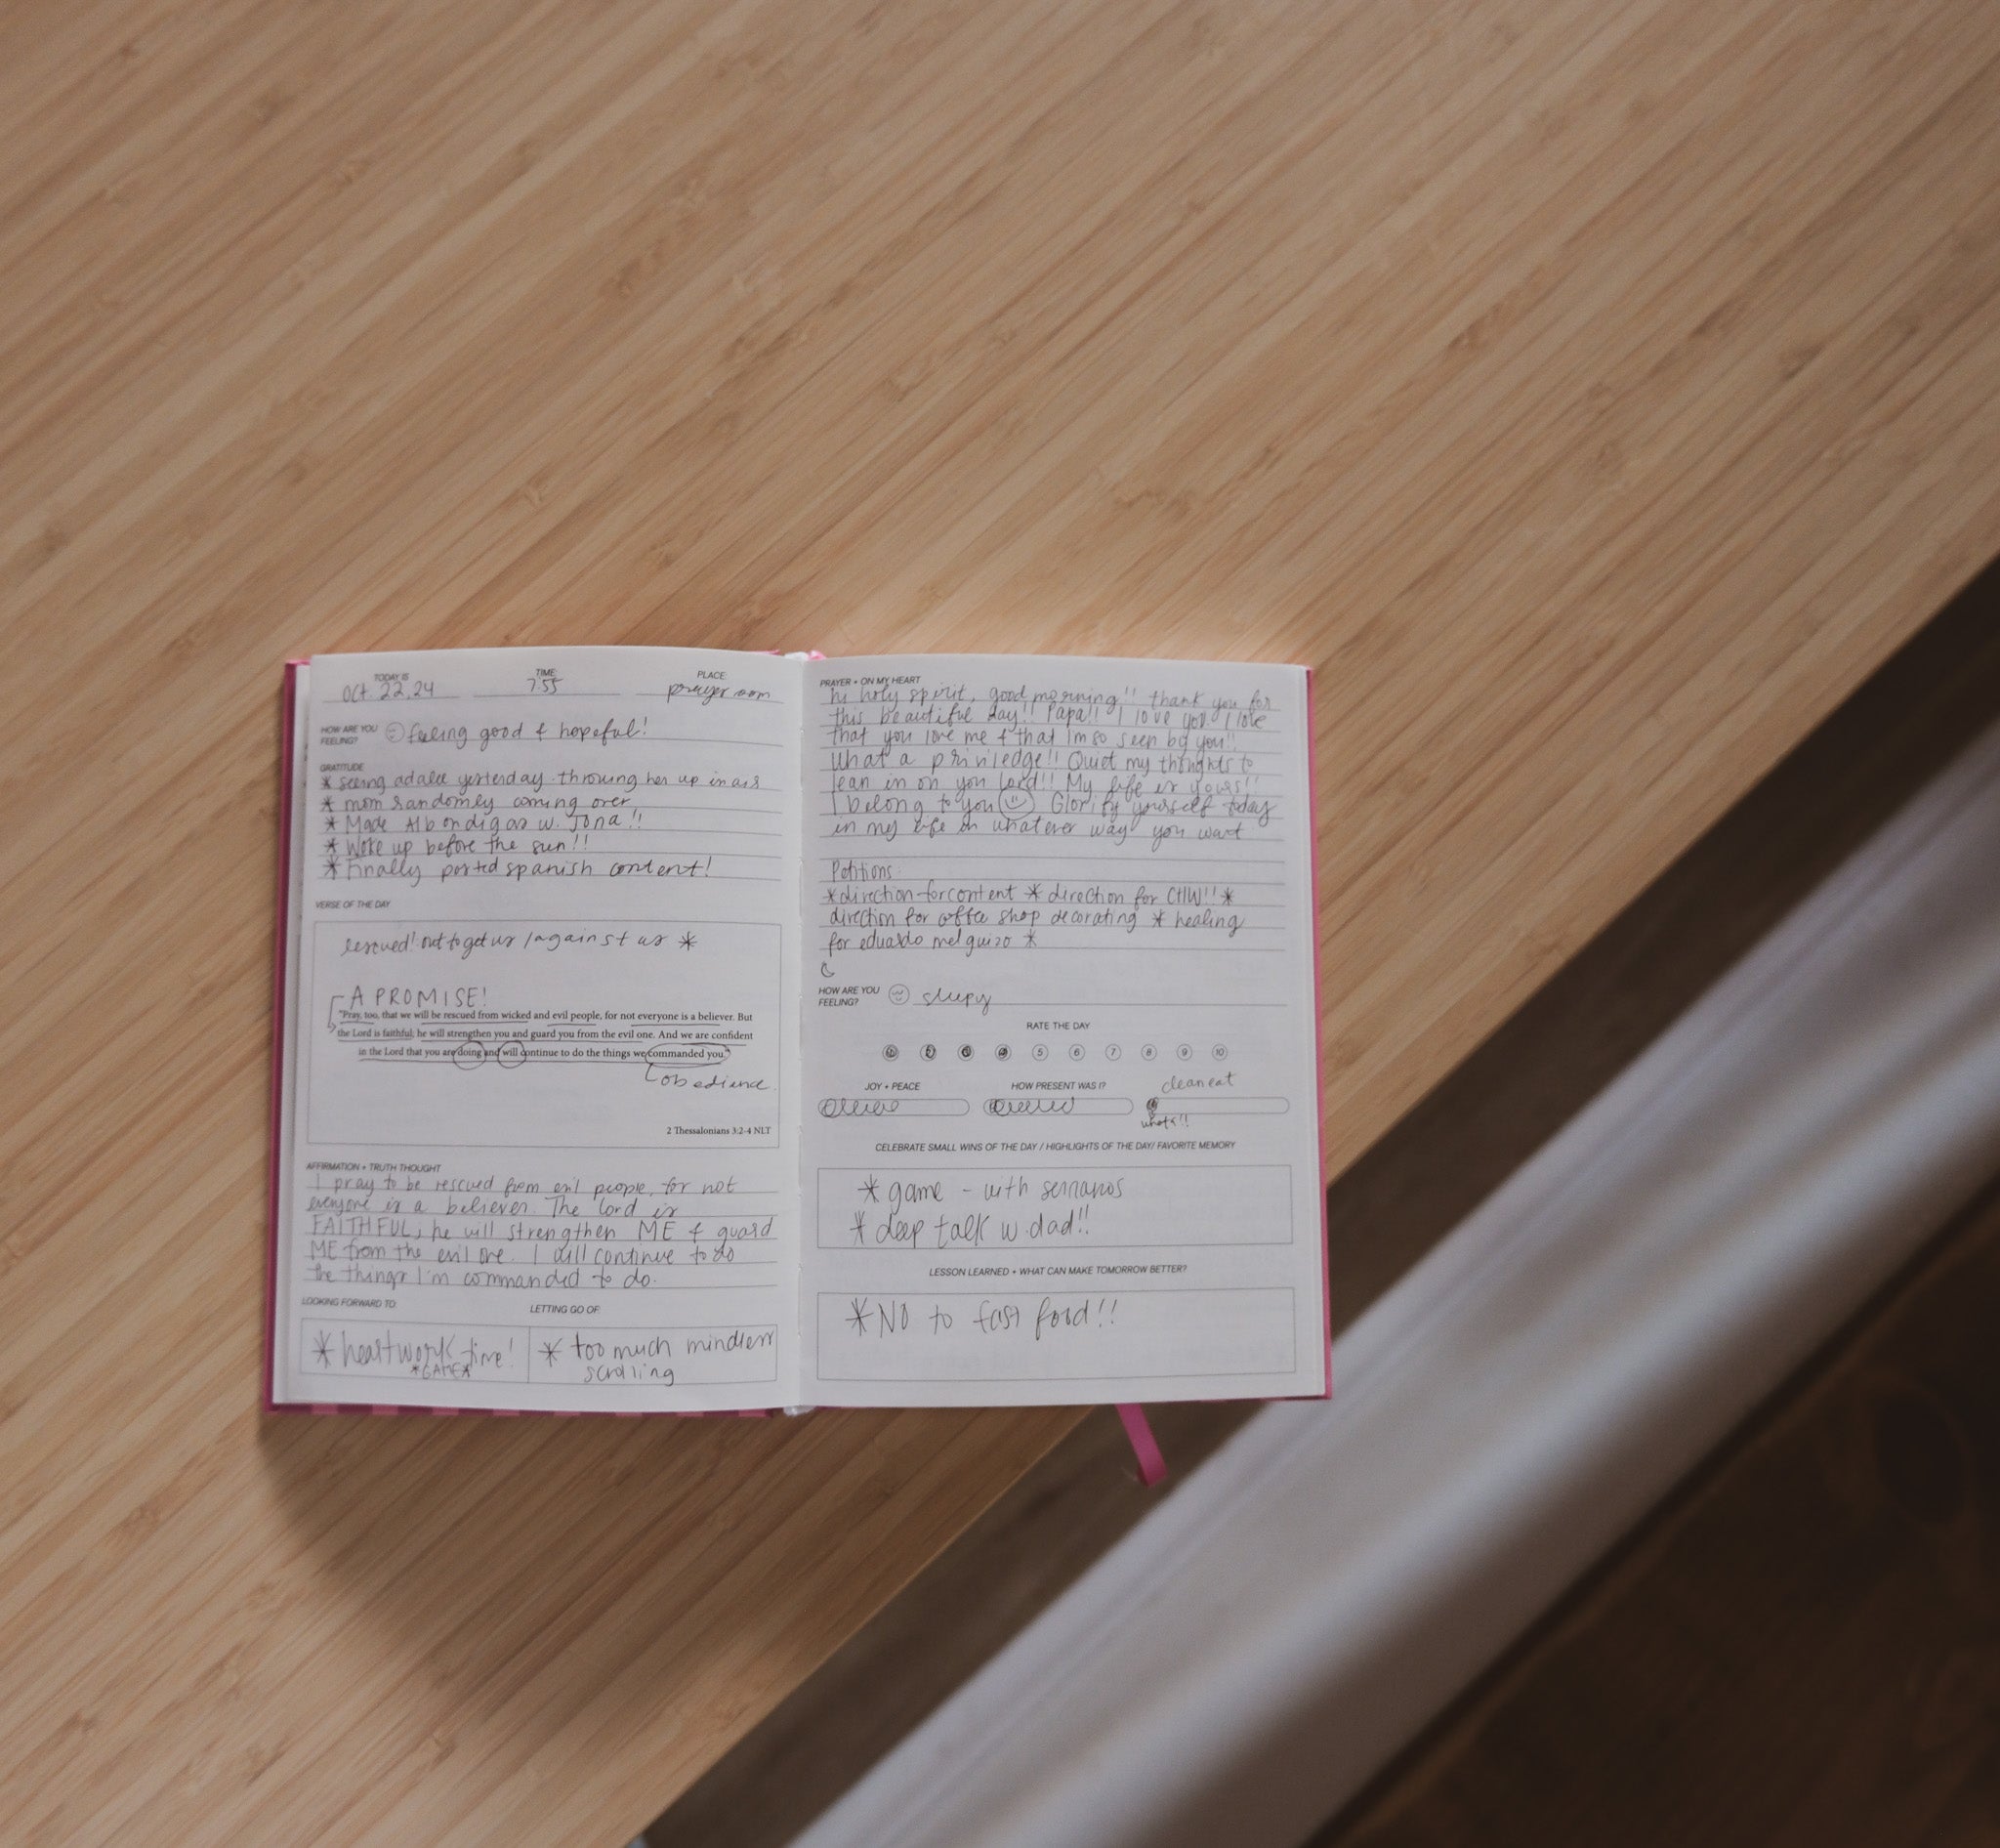 TODAY IS
Oct. 22, 24
TIME:
7:55
PLACE:
prayer room
HOW ARE YOU
FEELING?
feeling good & hopeful!
GRATITUDE
* seeing adalee yesterday. throwing her up in air
* mom randomly coming over
* Made Albondigas w. Jona!!
* Woke up before the sun!!
* Finally posted spanish content!
VERSE OF THE DAY
rescued! out to get us / against us *
A PROMISE!
"Pray, too, that we will be rescued from wicked and evil people, for not everyone is a believer. But
the Lord is faithful; he will strengthen you and guard you from the evil one. And we are confident
in the Lord that you are doing and will continue to do the things we commanded you."
obedience.
2 Thessalonians 3:2-4 NLT
AFFIRMATION + TRUTH THOUGHT
I pray to be rescued from evil people, for not
everyone is a believer. The lord is
FAITHFUL; he will strengthen ME & guard
ME from the evil one. I will continue to do
the things I'm commanded to do.
LOOKING FORWARD TO:
* heartwork time!
*GAME*
LETTING GO OF:
* too much mindless
scrolling
PRAYER + ON MY HEART
hi holy spirit, good morning!! thank you for
this beautiful day!! Papa!! I love you. I love
that you love me & that Im so seen by you!!
What a priviledge!! Quiet my thoughts to
lean in on you Lord!! My life is yours!!
I belong to you Glorify yourself today
in my life in whatever way you want
Petitions:
*direction for content * direction for CHW!! *
direction for coffee shop decorating * healing
for eduardo melguizo *
HOW ARE YOU
FEELING?
sleepy
RATE THE DAY
5 6 7 8 9 10
JOY + PEACE
HOW PRESENT WAS I?
clean eat
whats!!
CELEBRATE SMALL WINS OF THE DAY / HIGHLIGHTS OF THE DAY/ FAVORITE MEMORY
* game - with serranos
* deep talk w. dad!!
LESSON LEARNED + WHAT CAN MAKE TOMORROW BETTER?
* NO to fast food!!